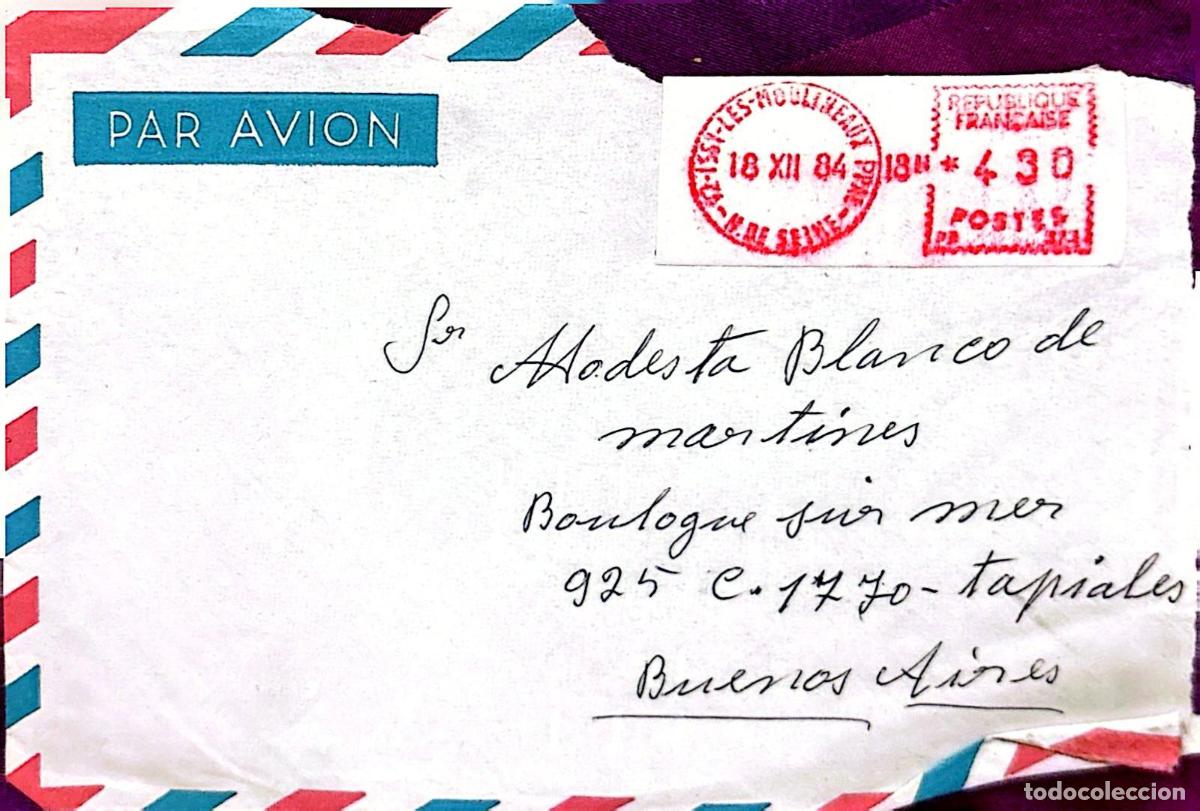 PAR AVION
92-ISSY-LES-MOULINEAUX PPAL
18 XII 84
H. DE SEINE
18H
REPUBLIQUE
FRANCAISE
* 430
POSTES
Sr
Modesta Blanco de
martines
Boulogne sur mer
925 C. 1770 - tapiales
Buenos Aires
todocoleccion